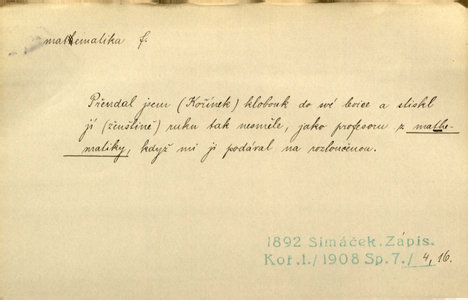 mathematika f.
Přendal jsem (Kořínek) klobouk do své levice a stiskl
jí (ženštině) ruku tak nesměle, jako profesoru z mathe-
matiky, když mi ji podával na rozloučenou.
1892 Šimáček, Zápis.
Koř.1./1908 Sp.7./ 4, 16.